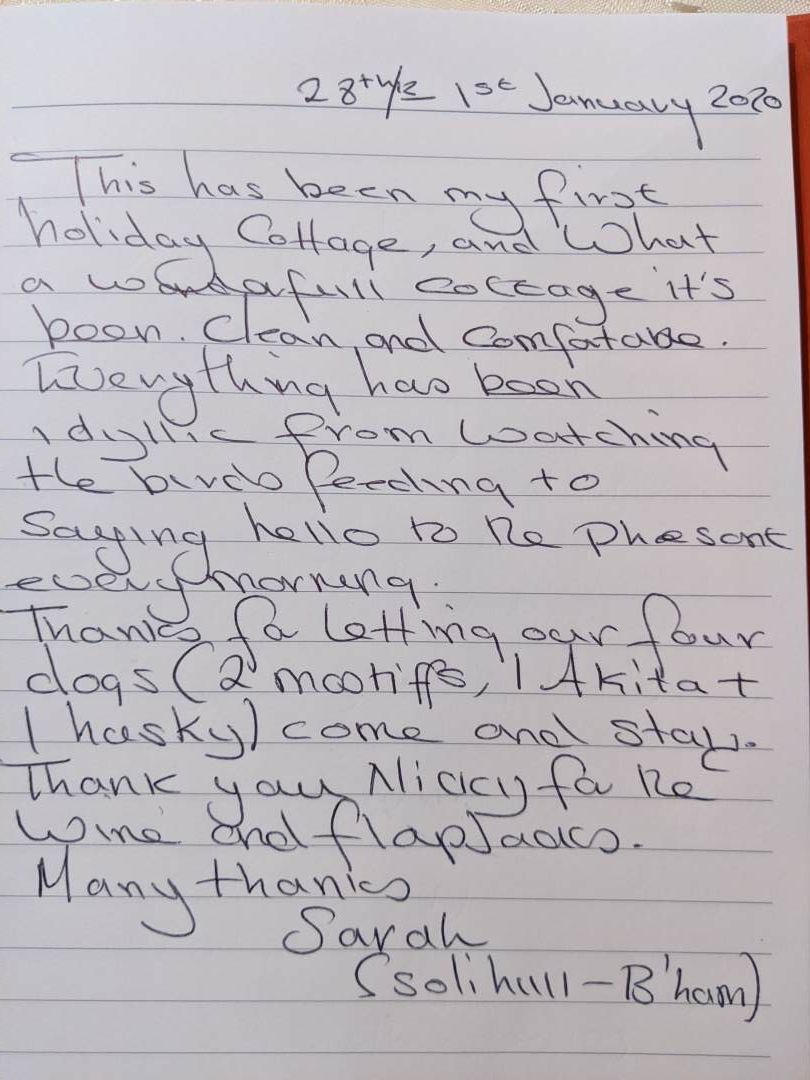 28th/12 1st January 2020
This has been my first
holiday Cottage, and What
a wondafull cottage it's
been. Clean and Comfatable.
Everything has been
idyllic from watching
the birds feeding to
Saying hello to the Phesant
every morning.
Thanks for letting our four
dogs (2 mastiffs, 1 Akita +
1 husky) come and stay.
Thank you Nicky for the
Wine and flapJacks.
Many thanks
Sarah
(Solihull - B'ham)